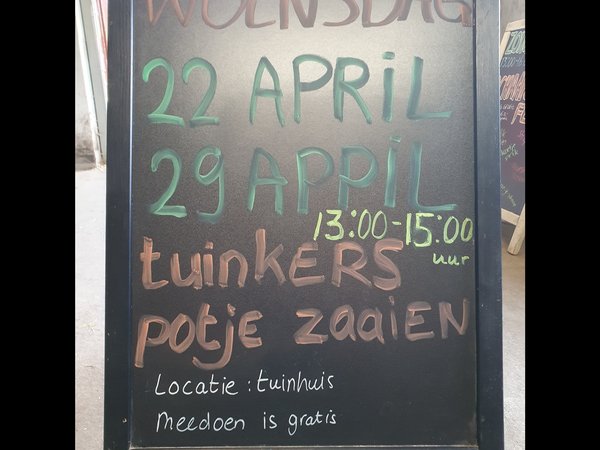 WOENSDAG
22 APRiL
29 APPiL
13:00-15:00
uur
tuinKERS
potje ZAAiEN
Locatie : tuinhuis
Meedoen is gratis